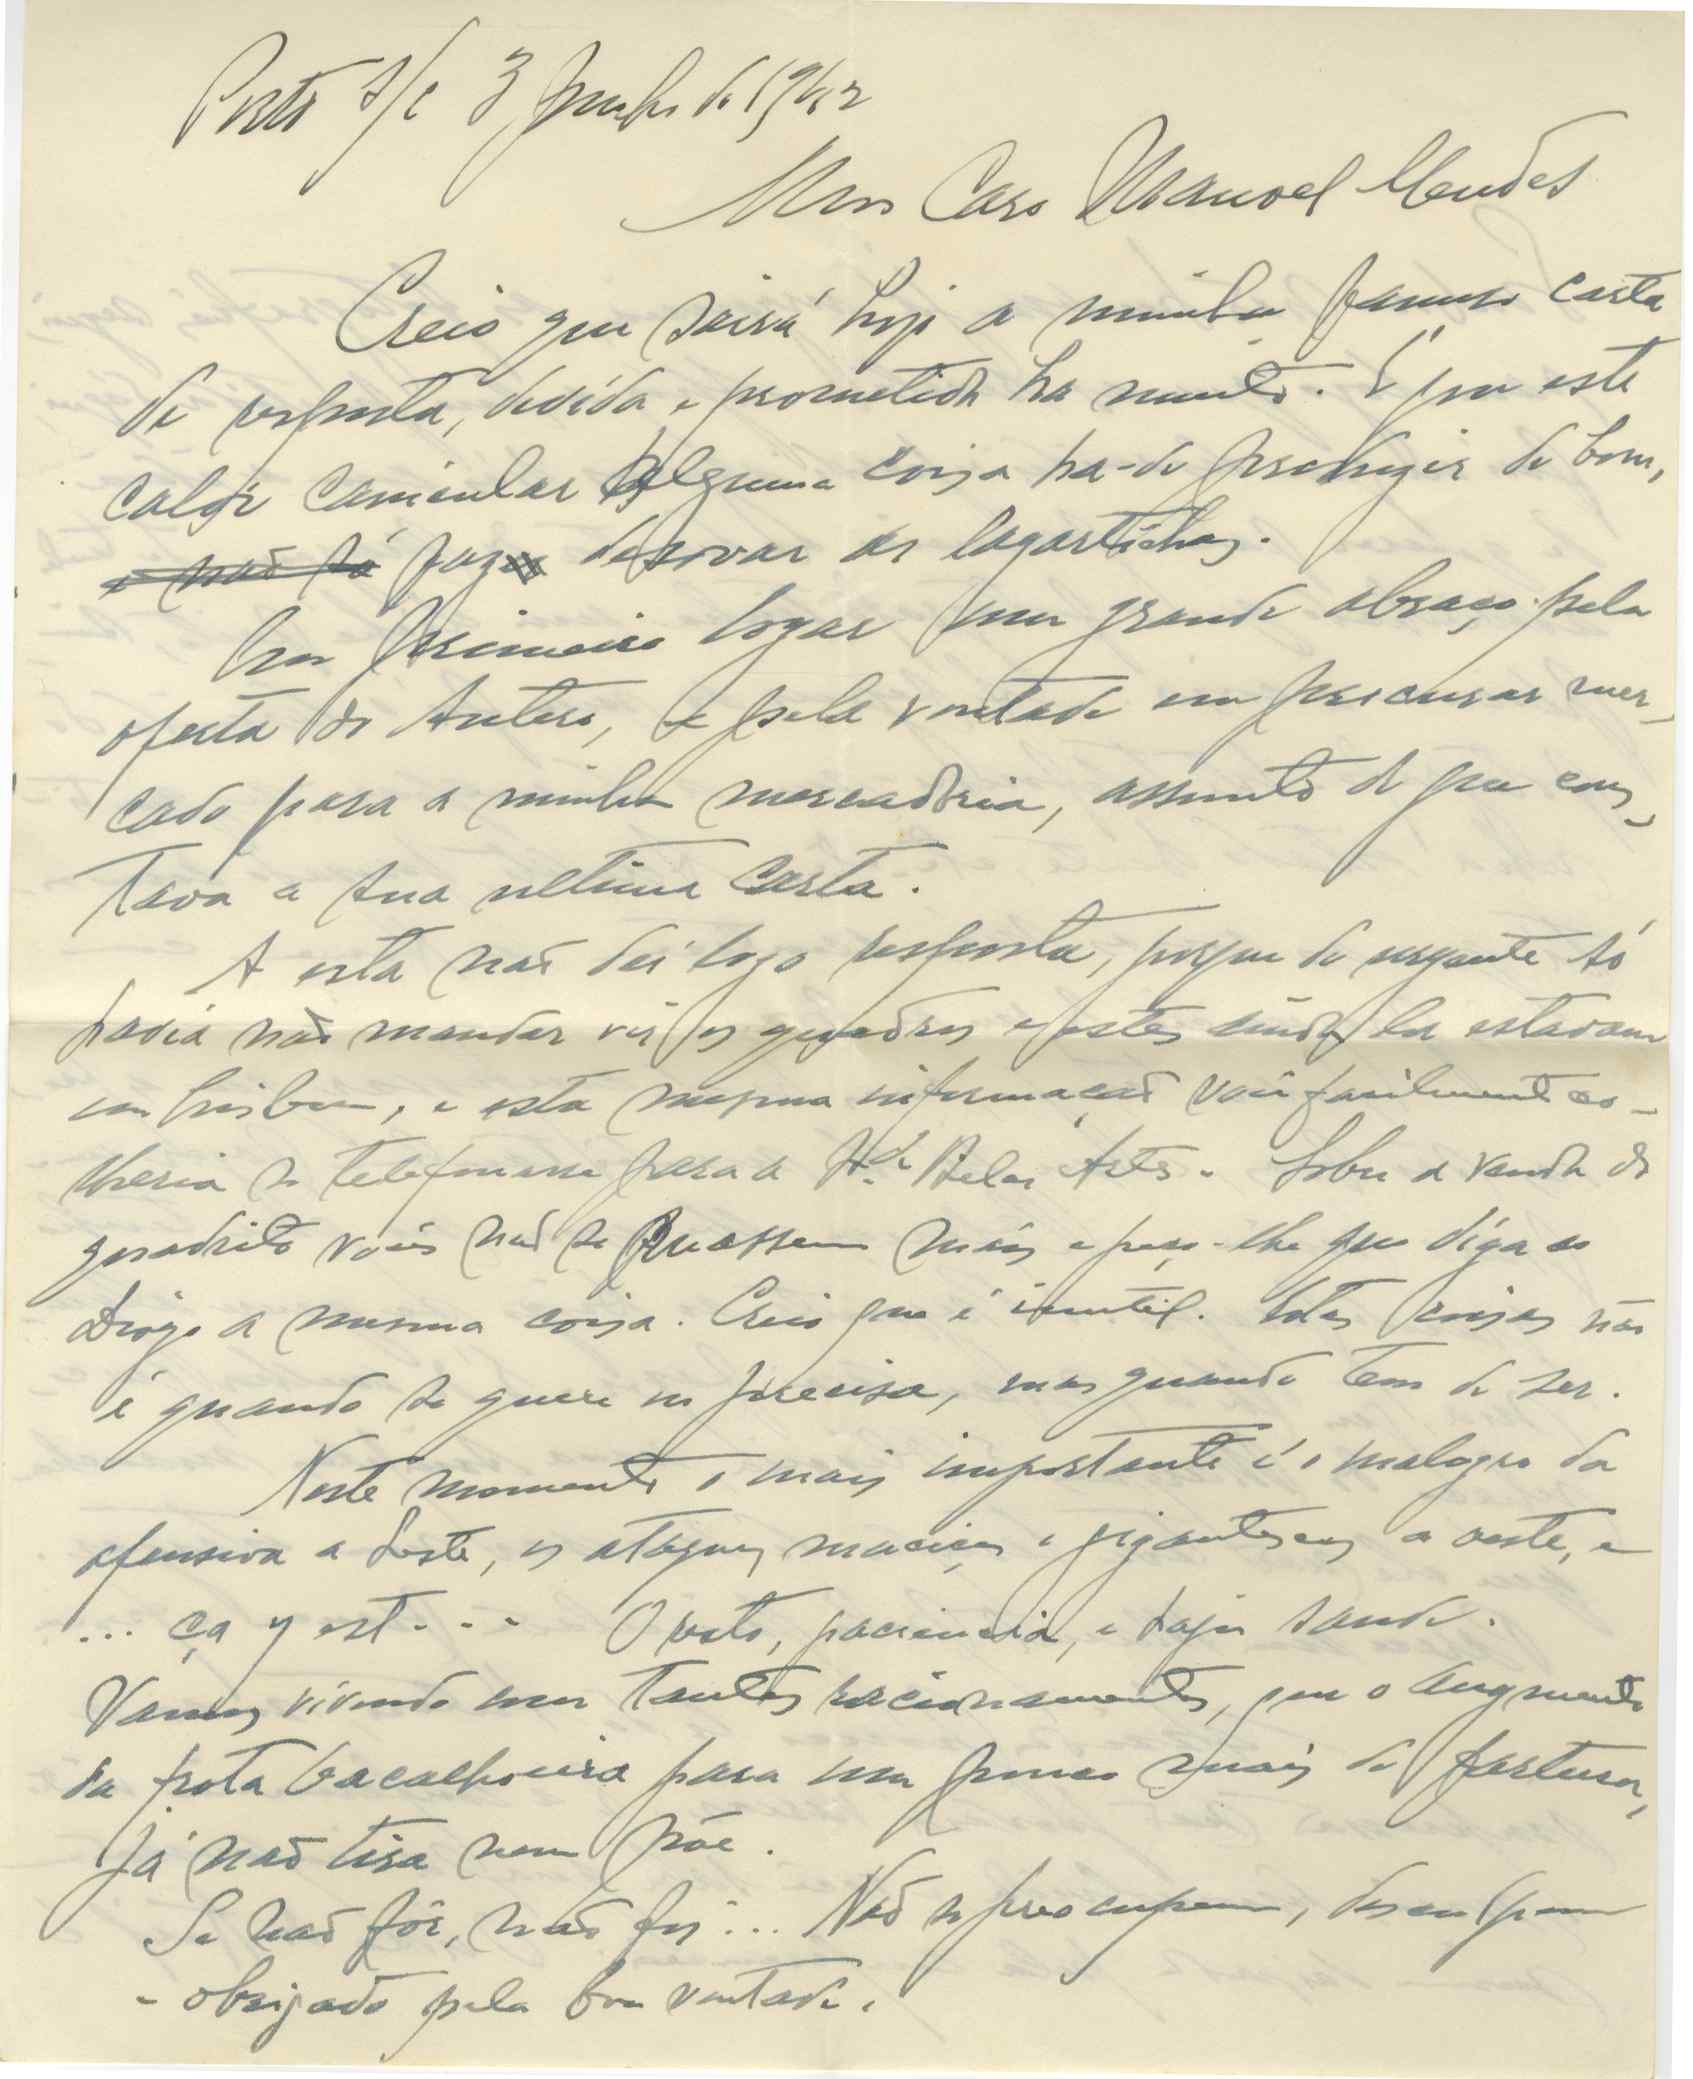 Porto s/c 3 Junho de 1942
Meu Caro Manoel Mendes
Creio que sairá hoje a minha famosa carta
de resposta, devida e prometida ha muito. É que este
calor canicular alguma coisa ha-de produzir de bom,
e não só faz desovar as lagartichas.
Em primeiro logar um grande abraço pela
oferta do Antero, e pela vontade em procurar mer-
cado para a minha mercadoria, assunto de que cons-
tava a sua ultima carta.
A esta não dei logo resposta, porque de urgente só
havia não mandar vir os quadros e estes ainda la estavam
em Lisboa, e esta mesma informação você facilmente co-
lheria se telefonasse para a S.de Belas Artes. Sobre a venda do
quadrito vocês não se massem mais e peço-lhe que diga ao
Diogo a mesma coisa. Creio que é inutil. Estas coisas não
é quando se quere ou precisa, mas quando tem de ser.
Neste momento o mais importante é o malogro da
ofensiva a Leste, os ataques maciços e gigantescos a oeste, e
... ça y est... O resto, paciencia, e haja saude.
Vamos vivendo com tantos racionamentos, que o augmento
da frota bacalhoeira para um pouco mais de fartura,
já não tira nem põe.
Se não fôr, não foi... Não se preocupem, desculpem
e obrigado pela boa vontade.